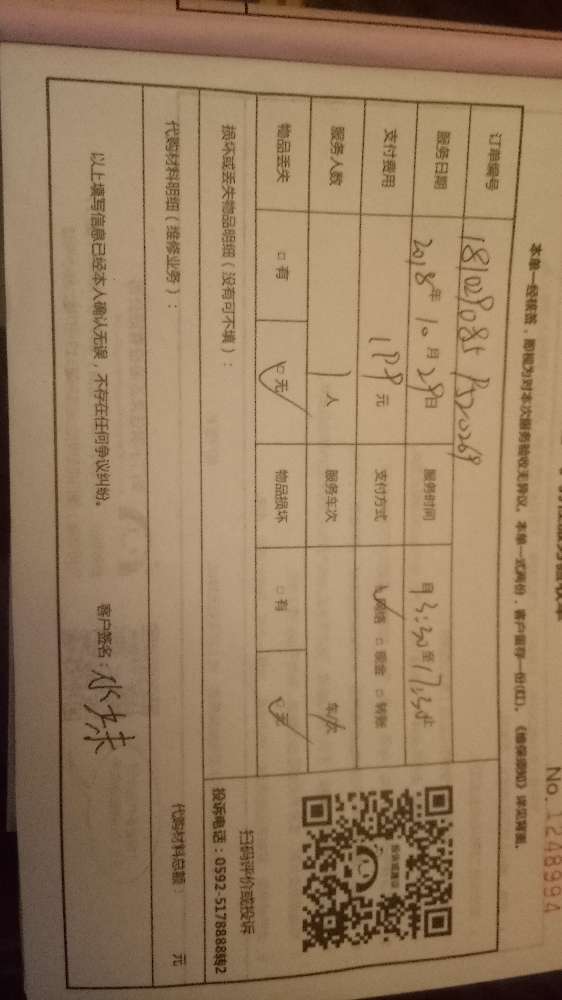 No.1248994
本单一经核签，即视为对本次服务验收无异议。本单一式两份，客户留存一份(红)。《维保须知》详见背面。
订单编号
服务日期 2018年10月29日 服务时间 自13:30至17:30止
支付费用 188元 支付方式 网络 □ 现金 □ 转账
服务人数 1人 服务车次 车/次
物品丢失 □ 有 □ 无 物品损坏 □ 有 □ 无
损坏或丢失物品明细（没有可不填）：
扫码评价或投诉
投诉电话：0592-5178888转2
代购材料明细（维修业务）：
代购材料总额： 元
以上填写信息已经本人确认无误，不存在任何争议纠纷。
客户签名：